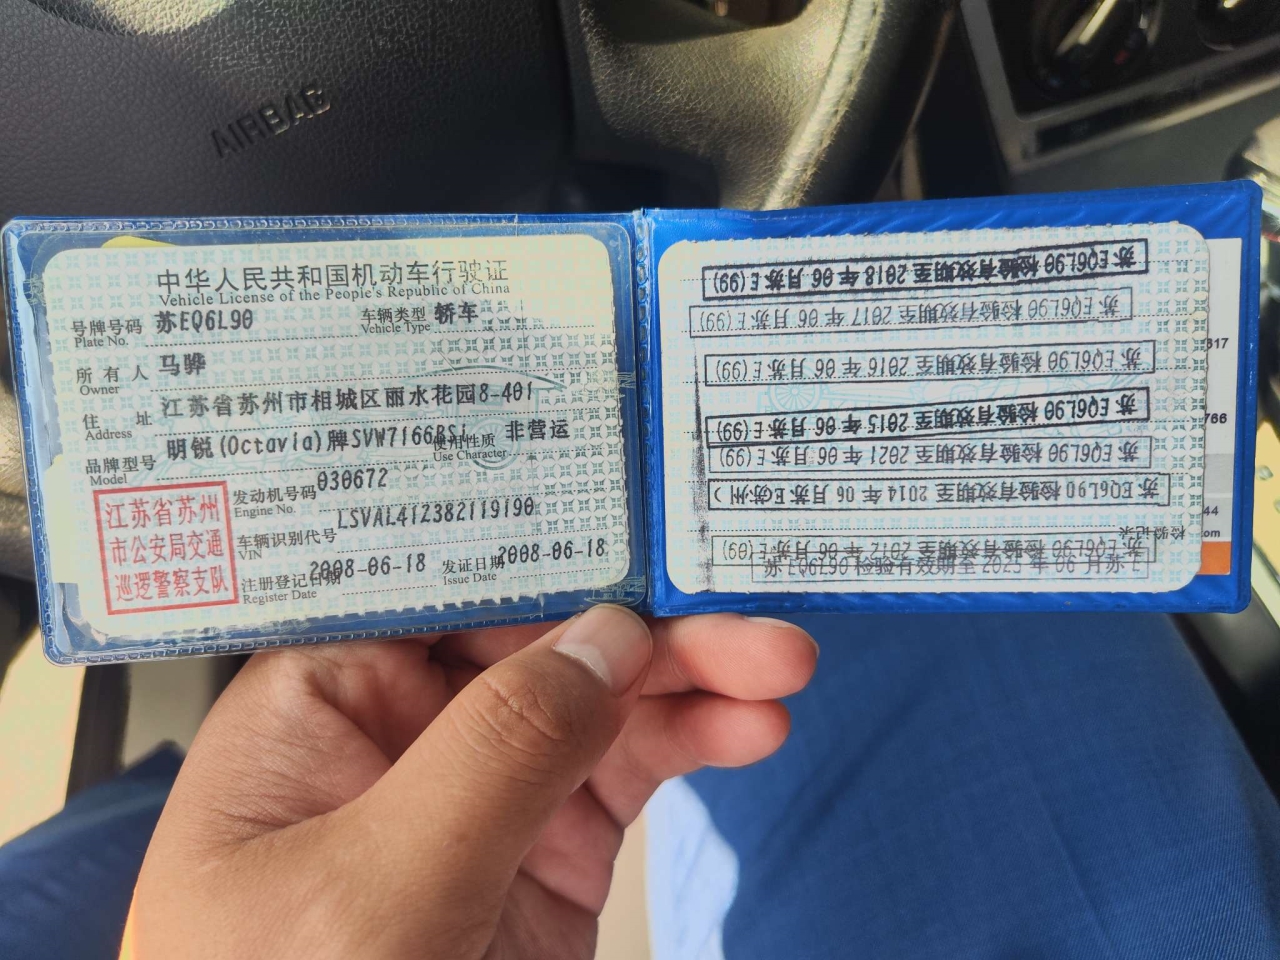 AIRBAG
中华人民共和国机动车行驶证
Vehicle License of the People's Republic of China
号牌号码 苏EQ6L90 车辆类型 轿车
Plate No. Vehicle Type
所有人 马骅
Owner
住址 江苏省苏州市相城区丽水花园8-401
Address
品牌型号 明锐(Octavia)牌SVW7166BSi 使用性质 非营运
Model Use Character
江苏省苏州
市公安局交通
巡逻警察支队
发动机号码 030672
Engine No.
车辆识别代号 LSVAL412382119190
VIN
注册登记日期 2008-06-18 发证日期 2008-06-18
Register Date Issue Date
苏EQ6L90 检验有效期至 2018年06月苏E(99)
苏EQ6L90 检验有效期至 2017年06月苏E(99)
苏EQ6L90 检验有效期至 2016年06月苏E(99)
苏EQ6L90 检验有效期至 2015年06月苏E(99)
苏EQ6L90 检验有效期至 2021年06月苏E(99)
苏EQ6L90 检验有效期至 2014年06月苏E(苏州)
检验记录
苏EQ6L90 检验有效期至 2012年06月苏E(99)
检验有效期至 2023年06月苏
317
766
44
com